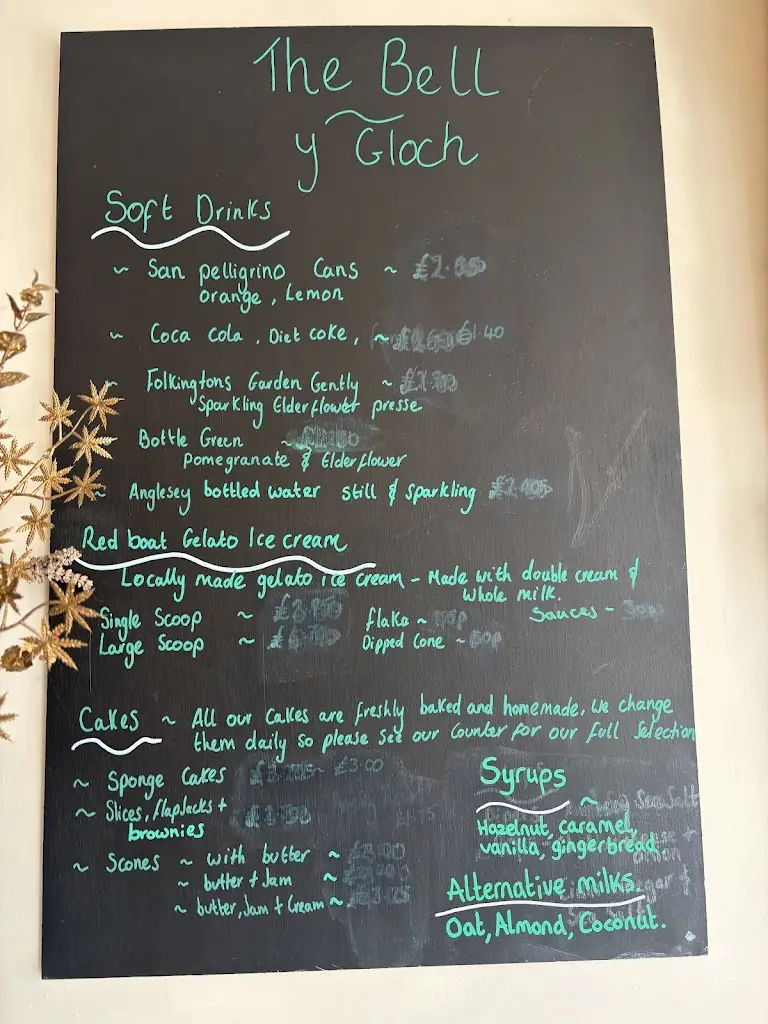 The Bell
y Gloch
Soft Drinks
~ San pelligrino Cans ~
orange, Lemon
~ Coca cola, Diet coke, ~ £1.40
~ Folkingtons Garden Gently ~
Sparkling Elderflower presse
Bottle Green ~
Pomegranate & Elderflower
~ Anglesey bottled water still & Sparkling
Red boat Gelato Ice cream
Locally made gelato ice cream - Made with double cream &
whole milk.
Single Scoop ~ flake ~ Sauces -
Large Scoop ~ Dipped Cone ~
Cakes ~ All our cakes are freshly baked and homemade. We change
them daily so please see our counter for our full selection
~ Sponge Cakes £3.00
~ Slices, flapjacks +
brownies
~ Scones ~ with butter ~
~ butter + Jam ~
~ butter, Jam + Cream ~
Syrups
~
Hazelnut, caramel,
vanilla, gingerbread
Alternative milks.
Oat, Almond, Coconut.